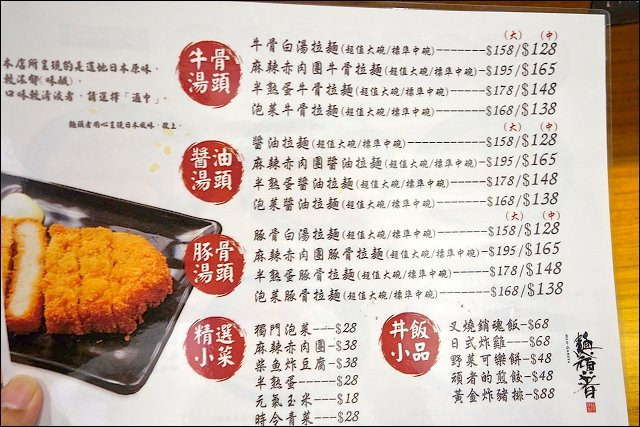 本店所呈現的是道地日本原味,
較濃郁(味鹹),
口味較清淡者,請選擇「適中」.
麵頑者用心呈現日本風味,敬上.
牛骨
湯頭
(大) (中)
牛骨白湯拉麵(超值大碗/標準中碗)-------$158/$128
麻辣赤肉團牛骨拉麵(超值大碗/標準中碗)---$195/$165
半熟蛋牛骨拉麵(超值大碗/標準中碗)-----$178/$148
泡菜牛骨拉麵(超值大碗/標準中碗)-------$168/$138
醬油
湯頭
(大) (中)
醬油拉麵(超值大碗/標準中碗)-----------$158/$128
麻辣赤肉團醬油拉麵(超值大碗/標準中碗)---$195/$165
半熟蛋醬油拉麵(超值大碗/標準中碗)-----$178/$148
泡菜醬油拉麵(超值大碗/標準中碗)-------$168/$138
豚骨
湯頭
(大) (中)
豚骨白湯拉麵(超值大碗/標準中碗)-------$158/$128
麻辣赤肉團豚骨拉麵(超值大碗/標準中碗)--$195/$165
半熟蛋豚骨拉麵(超值大碗/標準中碗)-----$178/$148
泡菜豚骨拉麵(超值大碗/標準中碗)-------$168/$138
精選
小菜
獨門泡菜---$28
麻辣赤肉團-$38
柴魚炸豆腐-$38
半熟蛋-----$28
元氣玉米---$18
時令青菜---$28
丼飯
小品
叉燒銷魂飯-$68
日式炸雞---$68
野菜可樂餅-$48
頑者的煎餃-$48
黃金炸豬排-$88
麵頑者